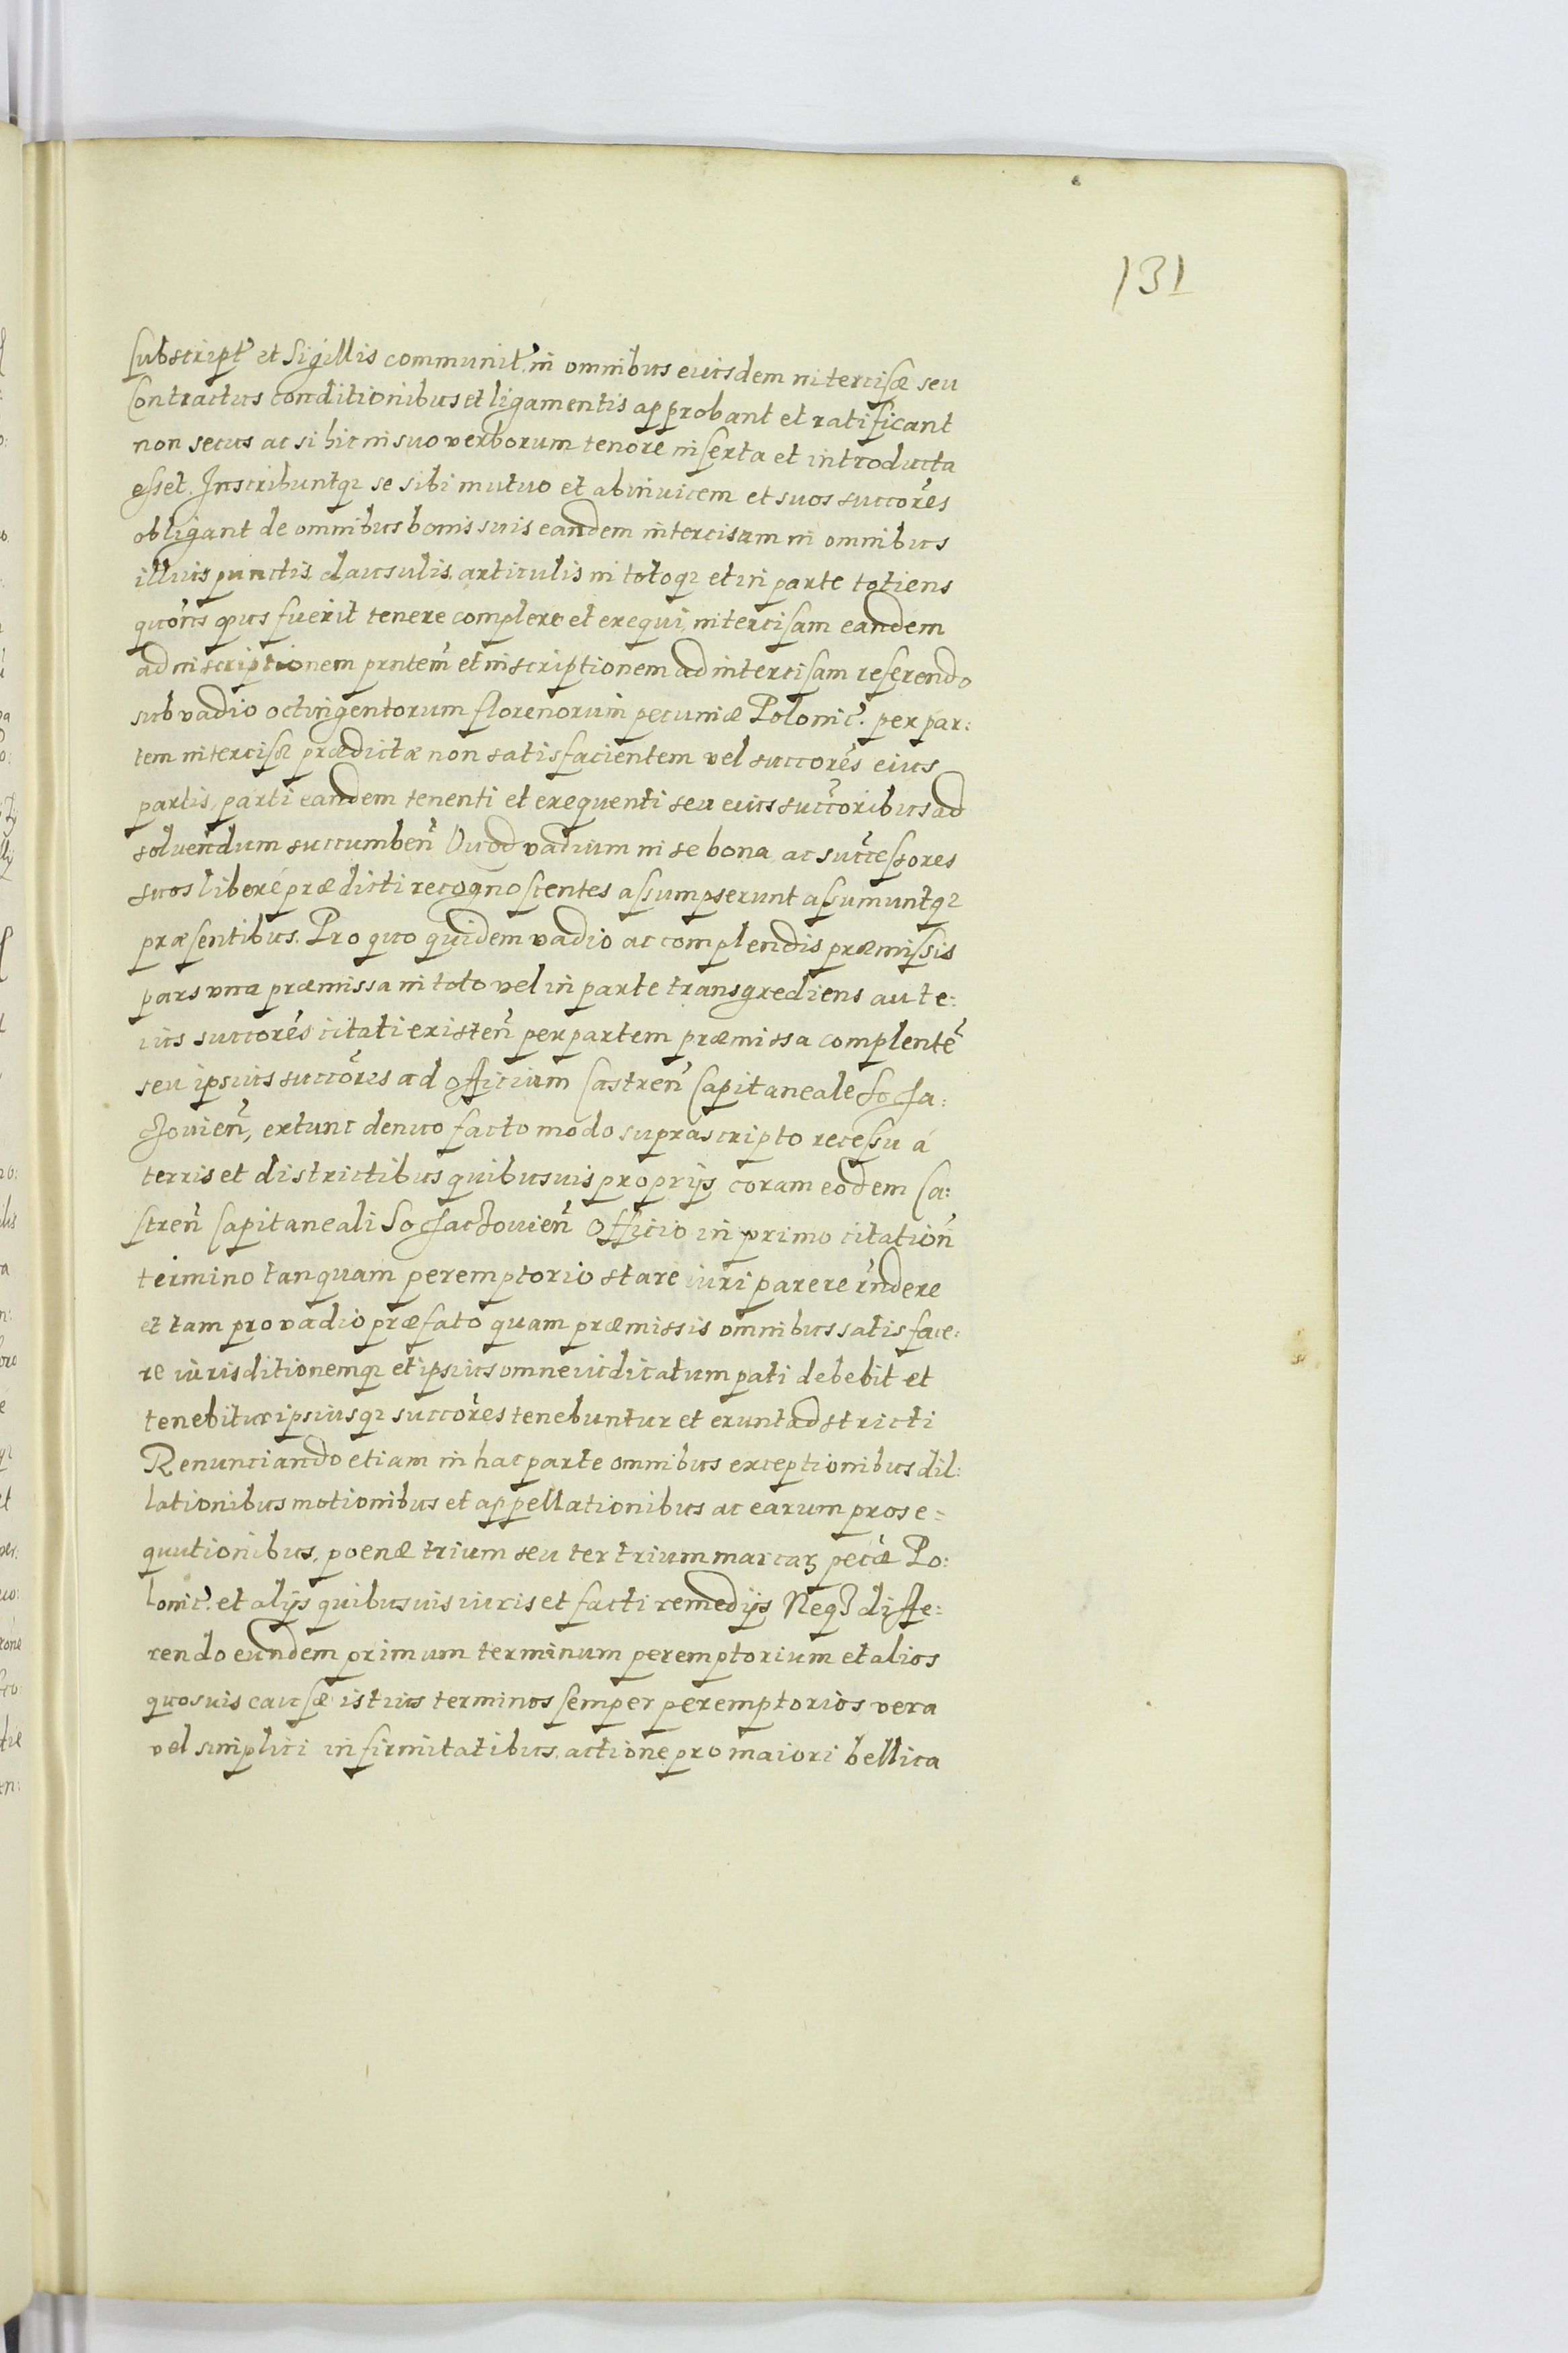 131
subscript. et Sigillis communit. in omnibus eiusdem intercisæ seu
Contractus conditionibus et ligamentis approbant et ratificant
non secus ac si hic in suo verborum tenore inserta et introducta
esset. Inscribuntq₃ se sibi mutuo et abinuicem et suos succores
obligant de omnibus bonis suis eandem intercisam in omnibus
illius punctis, clausulis, articulis in totoq₃ et in parte totiens
quons opus fuerit tenere complere et exequi, intercisam eandem
ad inscriptionem prntem et inscriptionem ad intercisam referendo
sub vadio octingentorum florenorum pecuniæ Polonic. per par:
tem intercisæ prædictæ non satisfacientem vel succores eius
partis, parti eandem tenenti et exequenti seu eius succoribus ad
soluendum succumben Quod vadium in se bona ac successores
suos liberé prædicti recognoscentes assumpserunt assumuntq₃
præsentibus. Pro quo quidem vadio ac complendis præmissis
pars vna præmissa in toto vel in parte transgrediens aut e:
ius succores citati existen per partem præmissa complente
seu ipsius succores ad officium Castren Capitaneale Socha:
czouien, extunc denuo facto modo suprascripto recessu á
terris et districtibus quibusuis proprijs coram eodem Ca:
stren Capitaneali Sochaczouien Officio in primo citation
termino tanquam peremptorio stare iuri parere rndere
et tam pro vadio præfato quam præmissis omnibus satisface:
re iurisditionemq₃ et ipsius omne iudicatum pati debebit et
tenebitur ipsiusq₃ succores tenebuntur et erunt adstricti
Renunciando etiam in hac parte omnibus exceptionibus dil:
lationibus motionibus et appellationibus ac earum prose=
qutionibus, poenæ trium seu ter trium marcaꝝ pecæ Po:
lonic. et alijs quibusuis iuris et facti remedijs Neq₃ diffe:
rendo eundem primum terminum peremptorium et alios
quosuis causæ istius terminos semper peremptorios vera
vel simplici infirmitatibus, actione pro maiori bellica